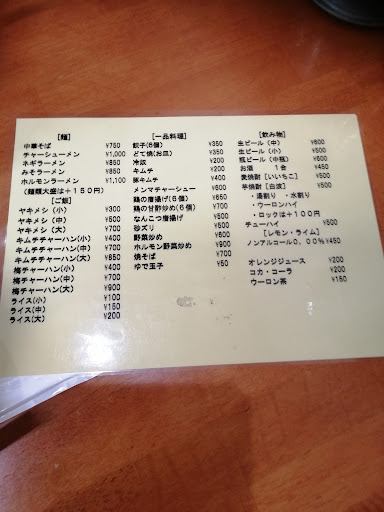 [麺]
中華そば ¥750
チャーシューメン ¥1,000
ネギラーメン ¥850
みそラーメン ¥850
ホルモンラーメン ¥1,100
(麺類大盛は+150円)
[ご飯]
ヤキメシ (小) ¥300
ヤキメシ (中) ¥500
ヤキメシ (大) ¥700
キムチチャーハン(小) ¥400
キムチチャーハン(中) ¥700
キムチチャーハン(大) ¥900
梅チャーハン(小) ¥400
梅チャーハン(中) ¥700
梅チャーハン(大) ¥900
ライス(小) ¥100
ライス(中) ¥150
ライス(大) ¥200
[一品料理]
餃子(6個) ¥350
どて焼(お皿)
冷奴
キムチ ¥350
豚キムチ ¥400
メンマチャーシュー
鶏の唐揚げ(6個) ¥650
鶏の甘酢炒め(6個) ¥700
なんこつ唐揚げ ¥500
砂ズリ ¥500
野菜炒め ¥600
ホルモン野菜炒め ¥900
焼そば ¥700
ゆで玉子 ¥50
[飲み物]
生ビール (中) ¥600
生ビール (小) ¥500
瓶ビール (中瓶) ¥600
お酒 1合 ¥400
麦焼酎 [いいちこ] ¥500
芋焼酎 [白波] ¥500
・湯割り ・水割り
・ウーロンハイ
・ロックは+100円
チューハイ ¥500
[レモン・ライム]
ノンアルコール0.00% ¥450
オレンジジュース ¥200
コカ・コーラ ¥200
ウーロン茶 ¥200